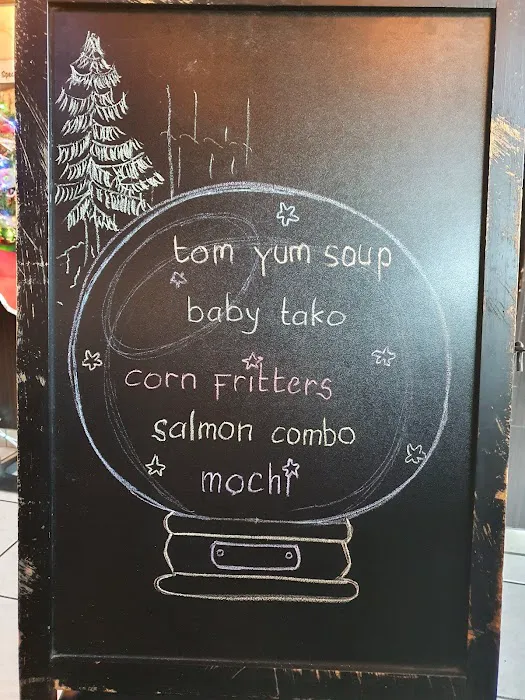 tom yum soup
baby tako
corn fritters
salmon combo
mochi